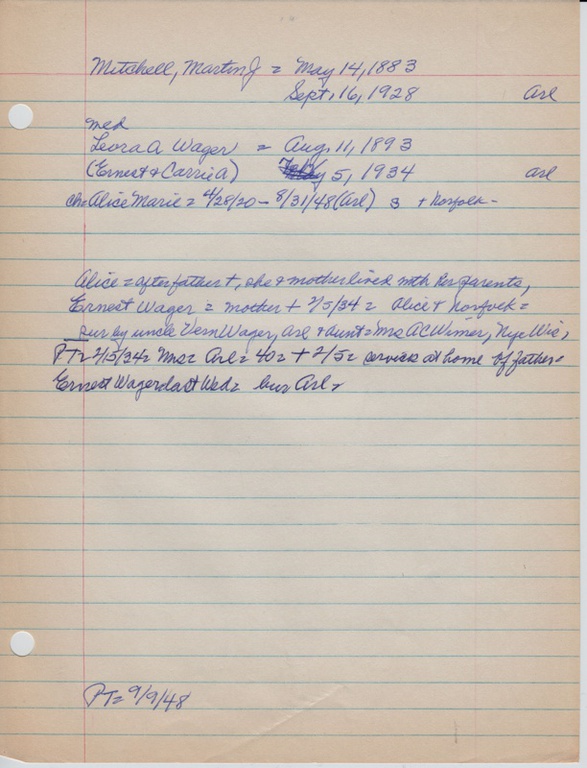 Mitchell, Martin J = May 14, 1883
Sept. 16, 1928 Arl
med
Leora A Wager = Aug. 11, 1893
(Ernest & Carrie A) 5, 1934 Arl
ch=Alice Marie = 4/28/20 - 8/31/48 (Arl) s + Norfolk -
Alice = after father +, she & mother lived with her parents,
Ernest Wager = mother + 2/5/34 = Alice + Norfolk =
sur by uncle Vern Wager, Arl & aunt = Mrs AC Wimer, Nye Wis,
PT = 2/15/34 = Mrs = Arl = 40 = + 2/5 = services at home of father =
Ernest Wager last Wed = bur Arl =
PT = 9/9/48